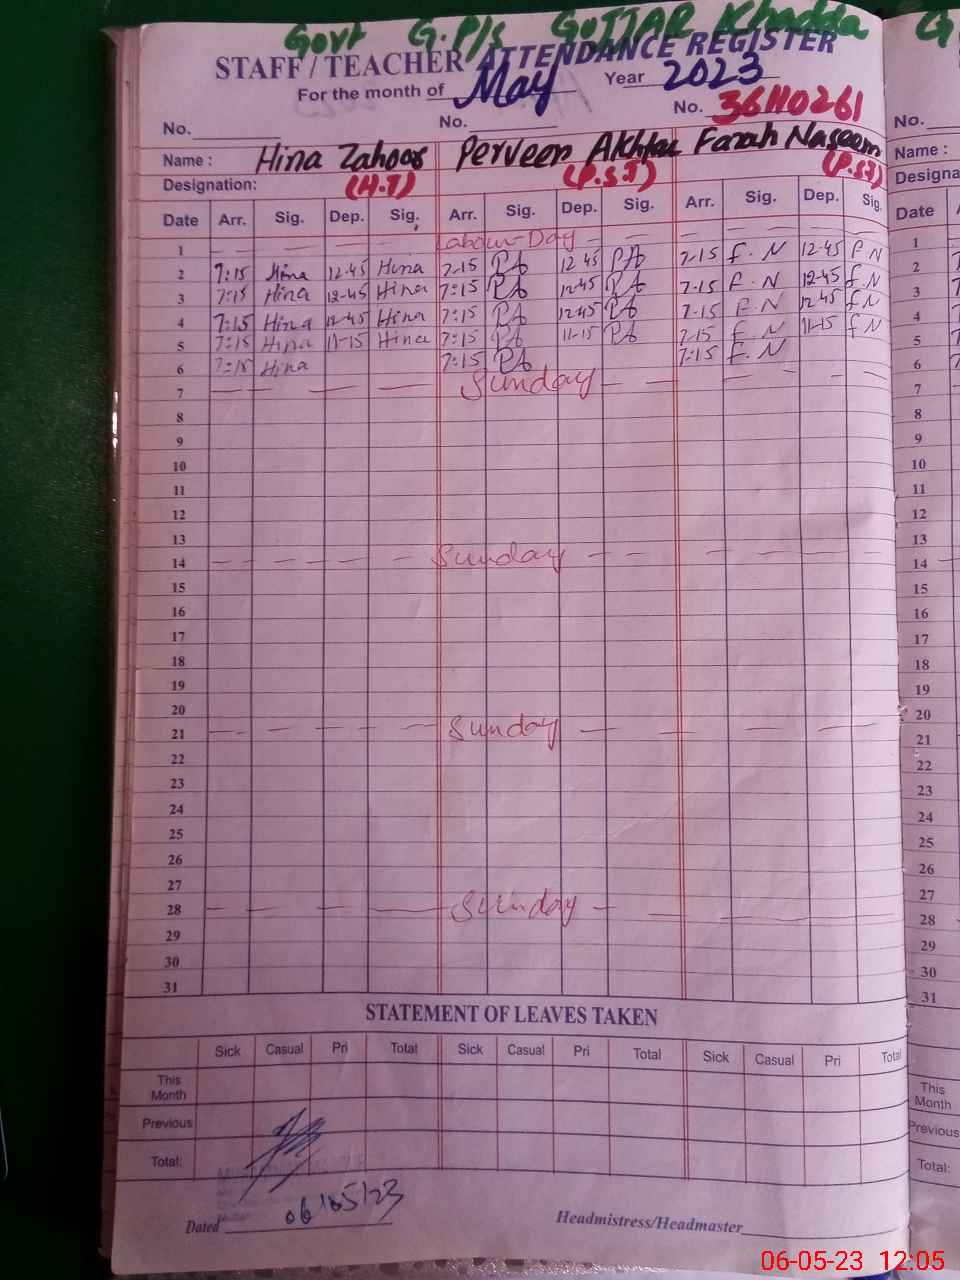 Govt G.P/S GUJJAR Khadda G
STAFF / TEACHER ATTENDANCE REGISTER
For the month of May Year 2023
No. No. No. 36110261 No.
Name : Hina Zahoor Perveen Akhtar Farah Naseem Name :
Designation: (H.T) (P.S.T) (P.ST) Designa
Date Arr. Sig. Dep. Sig. Arr. Sig. Dep. Sig. Arr. Sig. Dep. Sig. Date
1 Labour Day 1
2 7:15 Hina 12-45 Hina 7-15 PA 12 45 PA 7-15 F.N 12-45 F N 2
3 7:15 Hina 12-45 Hina 7:15 PA 12-45 PA 7-15 F.N 12-45 F.N 3
4 7:15 Hina 12-45 Hina 7:15 PA 12-45 PA 7-15 F.N 12 45 F.N 4
5 7:15 Hina 11-15 Hina 7:15 PA 11-15 PA 7-15 F.N 11-15 F N 5
6 7:15 Hina 7:15 PA 7:15 F.N 6
7 Sunday 7
8 8
9 9
10 10
11 11
12 12
13 13
14 Sunday 14
15 15
16 16
17 17
18 18
19 19
20 20
21 Sunday 21
22 22
23 23
24 24
25 25
26 26
27 27
28 Sunday 28
29 29
30 30
31 31
STATEMENT OF LEAVES TAKEN
Sick Casual Pri Total Sick Casual Pri Total Sick Casual Pri Total
This Month This Month
Previous Previous
Total: Total:
Dated 06/05/23 Headmistress/Headmaster
06-05-23 12:05